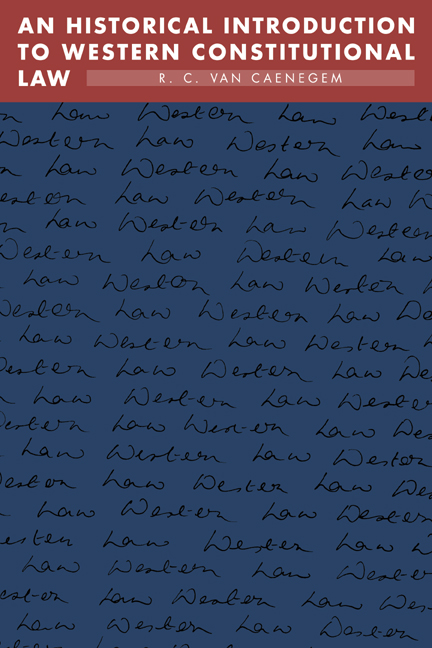 AN HISTORICAL INTRODUCTION
TO WESTERN CONSTITUTIONAL
LAW R. C. VAN CAENEGEM
Law Western Law West
Western Law Western Law
Law Western Law Wester
Law Western Law W
Law Western Law Western
Western Law Western Law
Law Western Law Western
Western Law Western Law We
Law Western Law Western
Western Law Western Law We
Law Western Law Western
Western Law Western Law Wes
Law Western Law Western
Western Law Western Law Wes
Law Western Law Western
Law Western Law W
Law Western Law Western
Law Western Law Wes
Law Western Law Western